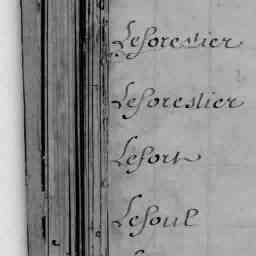 Leforestier
Leforestier
Lefort
Lefoul